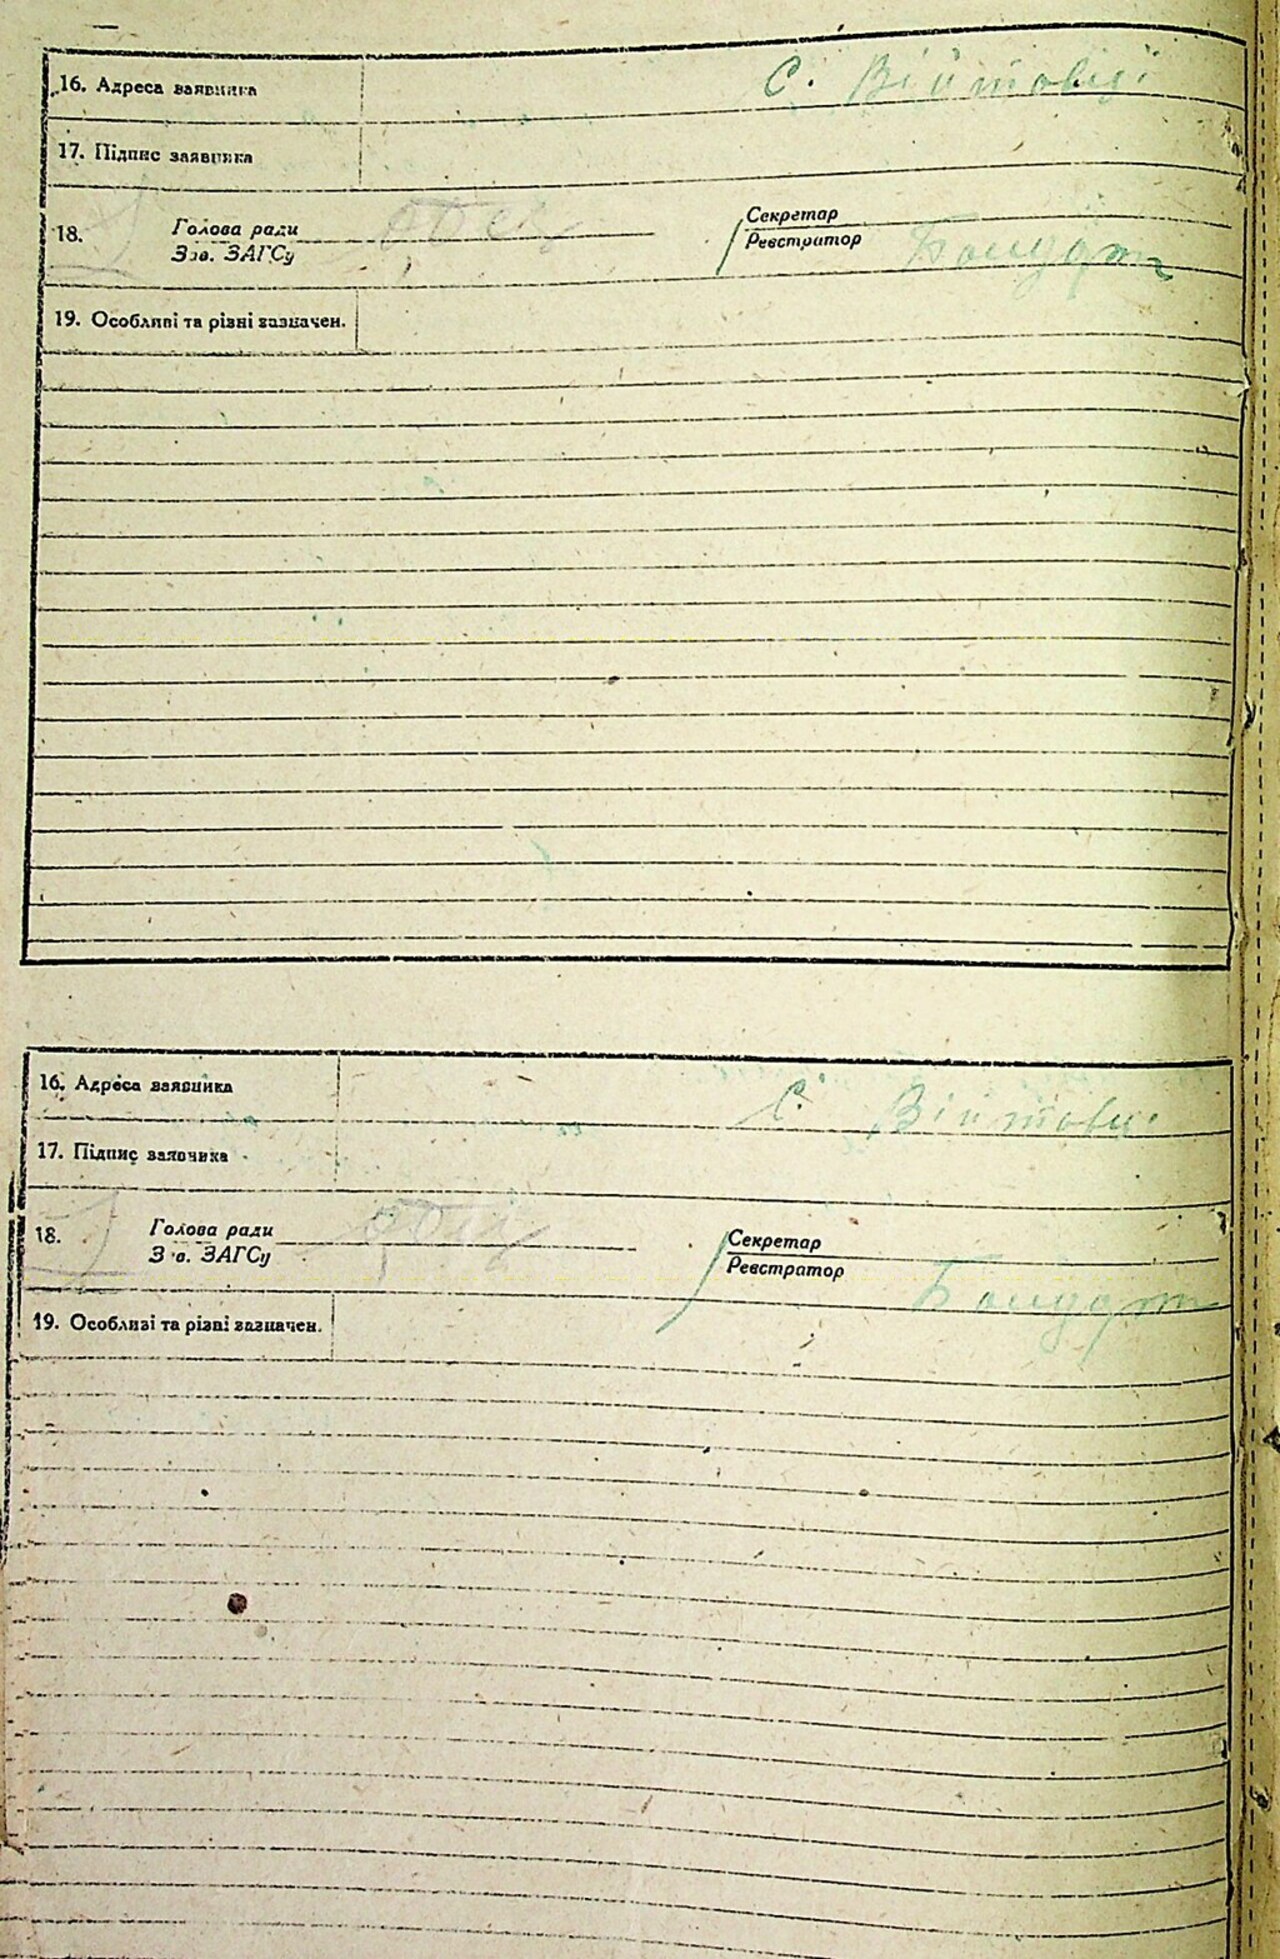 16. Адреса заявника С. Війтовці
17. Підпис заявника
18. Голова ради
Зав. ЗАГСу
Секретар
Реєстратор
19. Особливі та різні зазначен.
16. Адреса заявника С. Війтовці
17. Підпис заявника
18. Голова ради
Зав. ЗАГСу
Секретар
Реєстратор
19. Особливі та різні зазначен.